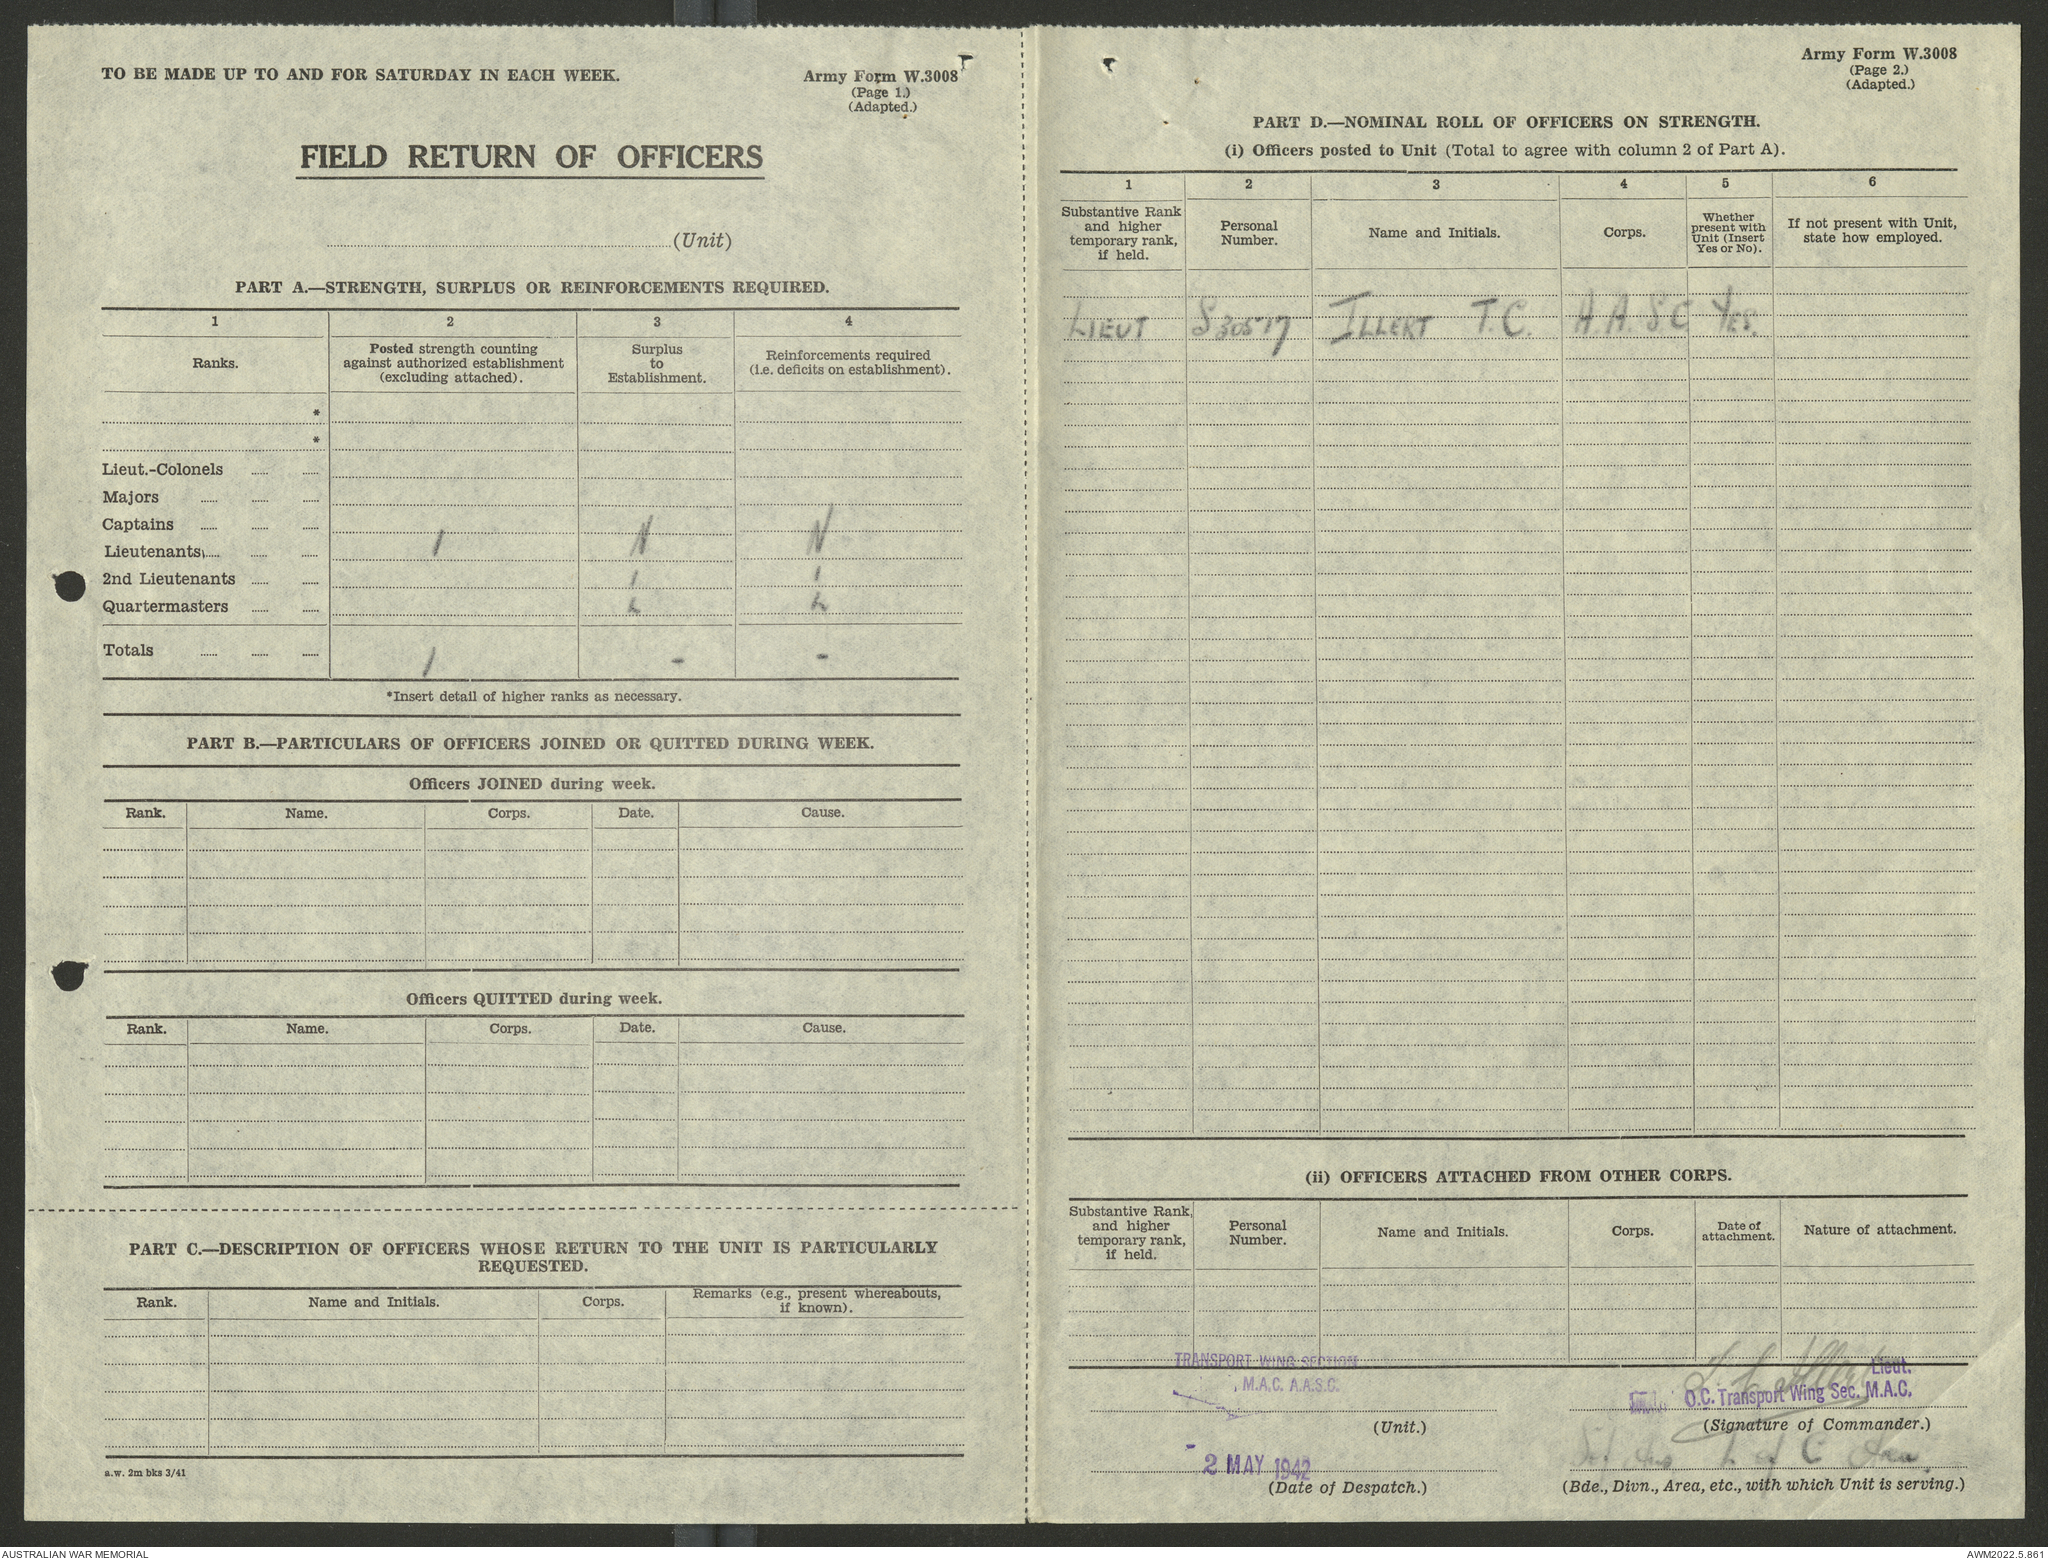 TO BE MADE UP TO AND FOR SATURDAY IN EACH WEEK.
Army Form W.3008
(Page 1.)
(Adapted.)
FIELD RETURN OF OFFICERS
(Unit)
PART A.—STRENGTH, SURPLUS OR REINFORCEMENTS REQUIRED.
1 2 3 4
Ranks. Posted strength counting against authorized establishment (excluding attached). Surplus to Establishment. Reinforcements required (i.e. deficits on establishment).
*
*
Lieut.-Colonels
Majors
Captains
Lieutenants 1 N N
2nd Lieutenants I I
Quartermasters L L
Totals 1 - -
*Insert detail of higher ranks as necessary.
PART B.—PARTICULARS OF OFFICERS JOINED OR QUITTED DURING WEEK.
Officers JOINED during week.
Rank. Name. Corps. Date. Cause.
Officers QUITTED during week.
Rank. Name. Corps. Date. Cause.
PART C.—DESCRIPTION OF OFFICERS WHOSE RETURN TO THE UNIT IS PARTICULARLY
REQUESTED.
Rank. Name and Initials. Corps. Remarks (e.g., present whereabouts, if known).
a.w. 2m bks 3/41
Army Form W.3008
(Page 2.)
(Adapted.)
PART D.—NOMINAL ROLL OF OFFICERS ON STRENGTH.
(i) Officers posted to Unit (Total to agree with column 2 of Part A).
1 2 3 4 5 6
Substantive Rank and higher temporary rank, if held. Personal Number. Name and Initials. Corps. Whether present with Unit (Insert Yes or No). If not present with Unit, state how employed.
LIEUT S30517 ILLERT T.C. A.A.S.C YES.
(ii) OFFICERS ATTACHED FROM OTHER CORPS.
Substantive Rank, and higher temporary rank, if held. Personal Number. Name and Initials. Corps. Date of attachment. Nature of attachment.
TRANSPORT WING SECTION
M.A.C. A.A.S.C.
(Unit.)
T C Illert Lieut.
O.C. Transport Wing Sec. M.A.C.
(Signature of Commander.)
2 MAY 1942
(Date of Despatch.)
L of C Area.
(Bde., Divn., Area, etc., with which Unit is serving.)
AUSTRALIAN WAR MEMORIAL
AWM2022.5.861